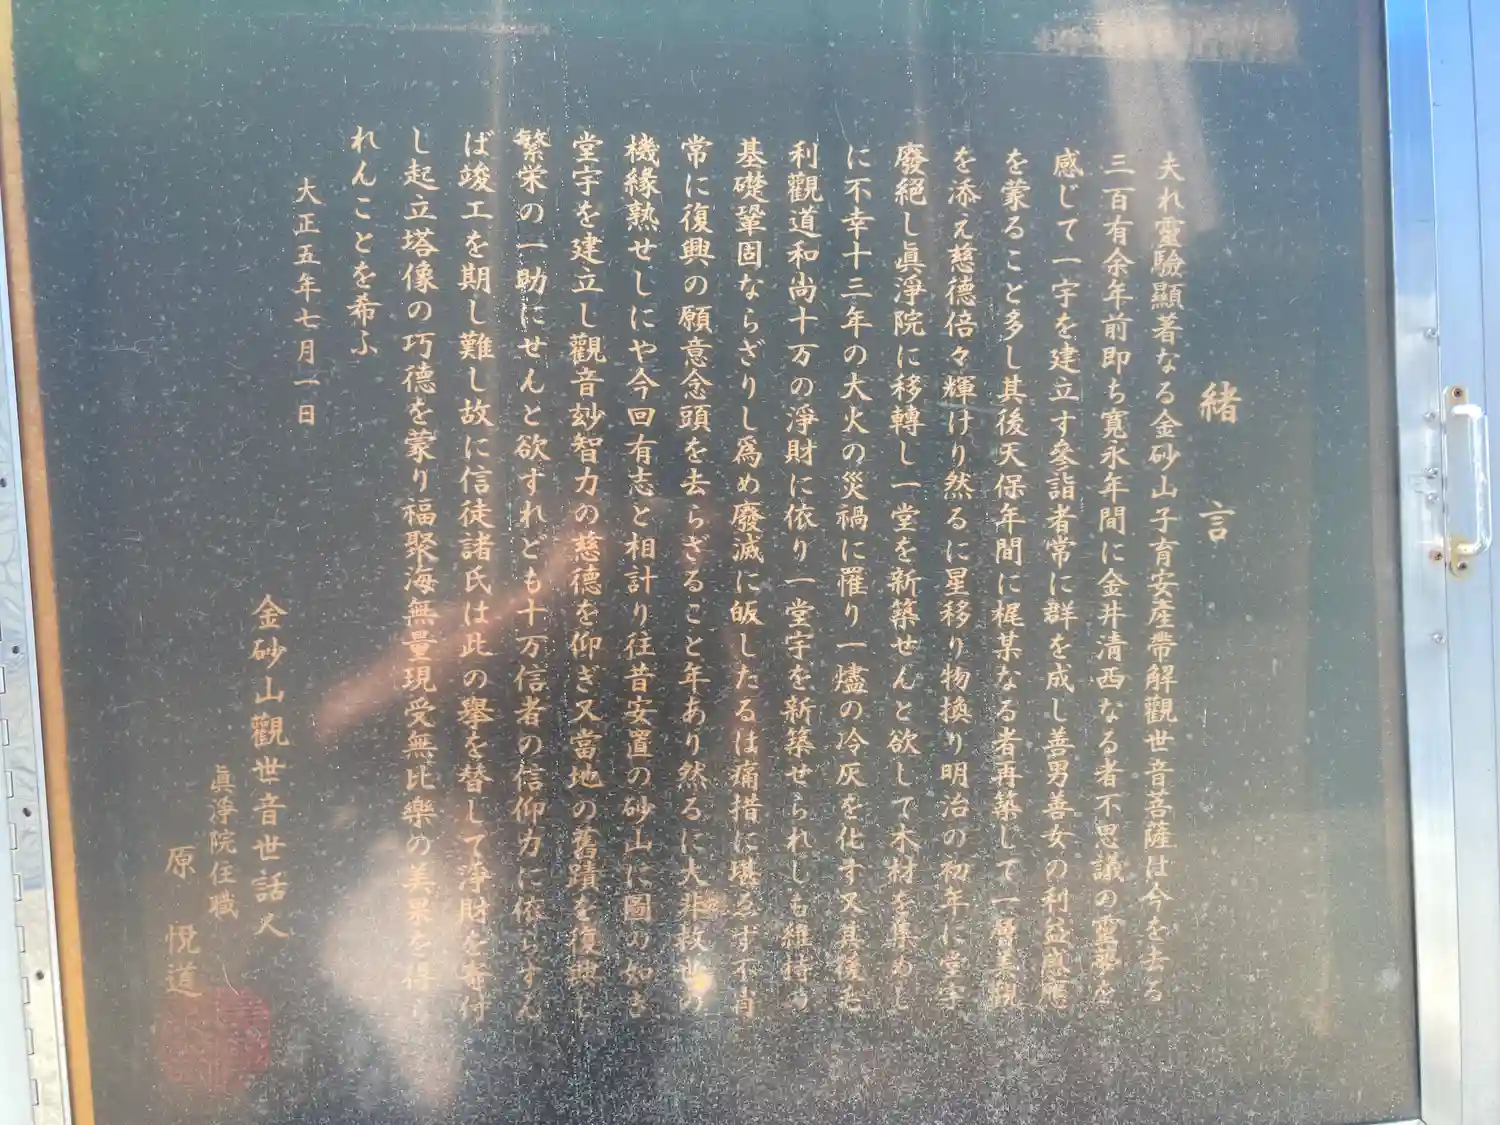 緒言
夫れ靈驗顯著なる金砂山子育安產帶解觀世音菩薩は今を去る
三百有余年前即ち寛永年間に金井淸西なる者不思議の靈夢を
感じて一宇を建立す參詣者常に群を成し善男善女の利益感應
を蒙ること多し其後天保年間に梶某なる者再築して一層美觀
を添え慈德倍々輝けり然るに星移り物換り明治の初年に堂宇
廢絕し眞淨院に移轉し一堂を新築せんと欲して木材を集めし
に不幸十三年の大火の災禍に罹り一燼の冷灰を化す又其後
利觀道和尚十万の淨財に依り一堂宇を新築せられしも維持の
基礎鞏固ならざりし爲め廢滅に皈したるは痛措に堪ゑず不肖
常に復興の願意念頭を去らざること年あり然るに大非救世の
機緣熟せしにや今回有志と相計り往昔安置の砂山に圖の如き
堂宇を建立し觀音玅智力の慈德を仰ぎ又當地の舊蹟を復興し
繁栄の一助にせんと欲すれども十万信者の信仰力に依らずん
ば竣工を期し難し故に信徒諸氏は此の擧を替して淨財を寄付
し起立塔像の巧德を蒙り福聚海無量現受無比樂の美果を得
れんことを希ふ
大正五年七月一日
金砂山觀世音世話人
眞淨院住職
原悅道